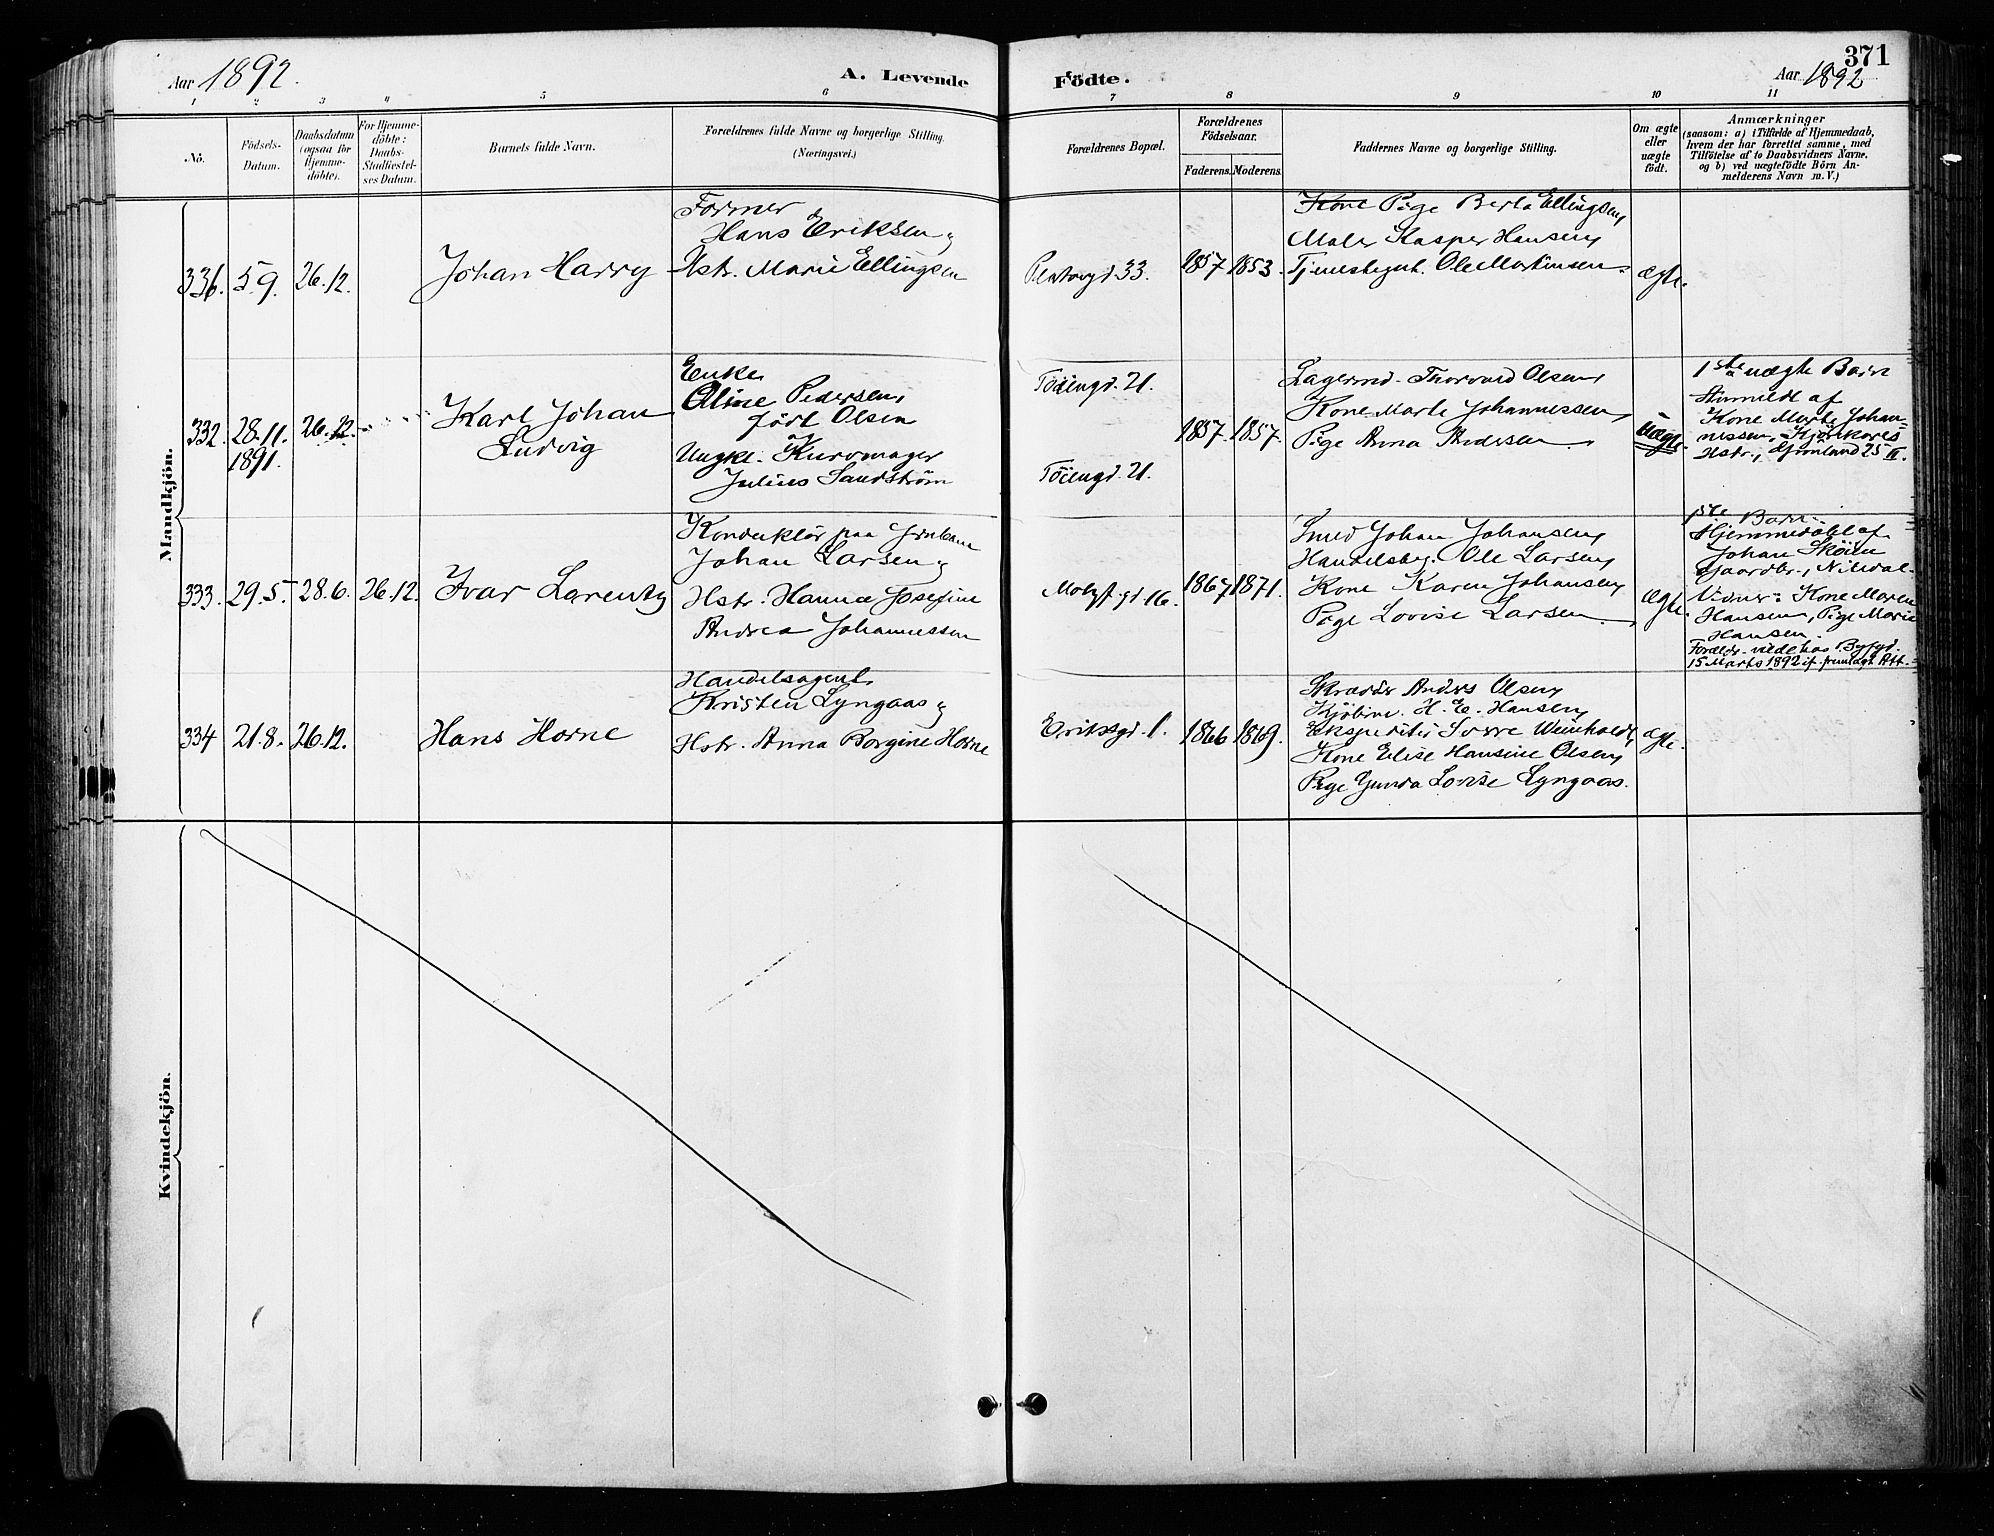 371
Aar 1892.
A. Levende
Födte.
Aar 1892
1 2 3 4 5 6 7 8 9 10 11
Nò.
Födsels-
Datum.
Daabsdatum
(ogsaa for
Hjemme-
döbte).
For Hjemme-
döbte:
Daabs-
Stadfæstel-
ses Datum.
Barnets fulde Navn.
Forældrenes fulde Navne og borgerlige Stilling.
(Næringsvei.)
Forældrenes Bopæl.
Forældrenes
Födselsaar.
Faderens. Moderens.
Faddernes Navne og borgerlige Stilling.
Om ægte
eller
uægte
födt.
Anmærkninger
(saasom: a) i Tilfælde af Hjemmedaab,
hvem der har forrettet samme, med
Tilföielse af to Daabsvidners Navne,
og b) ved uægtefödte Börn An-
melderens Navn m. V.)
Mandkjön.
336. 5.9. 26.12.
Johan Harry
Former
Hans Eriksen og
Hstr. Marie Ellingsen
33.
1857 1853.
Kone Pige Berta Ellingsen,
Maler Kasper Hansen,
Ole Martinsen.
ægte.
332. 28.11.
1891.
26.12.
Karl Johan
Ludvig
Enke
Oline Pedersen,
født Olsen
Ungk. Kurvmager
Julius Sandstrøm
Tøiengd. 21.
Tøiengd. 21.
1857. 1857.
Lagermd. Thorvald Olsen,
Kone Marte Johannessen,
Pige Anna Andersen.
uægte.
1ste uægte Barn
Anmeldt af
Kone Marte Johan-
nessen,
Hstr., Grønland 25 II.
333. 29.5. 28.6. 26.12.
Ivar Lorentz
Konduktør paa Jrnban
Johan Larsen og
Hstr. Hanna Josefine
Andrea Johannessen
16.
1867 1871.
Smed Johan Johansen,
Handelsbg. Ole Larsen,
Kone Karen Johansen,
Pige Lovise Larsen.
ægte.
1ste Barn.
Hjemmedøbt af
Johan Skøien
Gaardbr., Nitedal.
Vidner: Kone Maren
Hansen, Pige Marie
Hansen.
Foreldr. viede hos Byfgd.
15 Marts 1892 if. fremlagt Att.
334 21.8. 26.12.
Hans Horne
Handelsagent
Kristen Lyngaas og
Hstr. Anna Borgine Horne
Eriksgd. 1.
1866 1869.
Skrædder Anders Olsen,
Kjøbm. H. E. Hansen,
Weinholdt,
Kone Elise Hansine Olsen,
Pige Gunda Lovise Lyngaas.
ægte.
Kvindekjön.